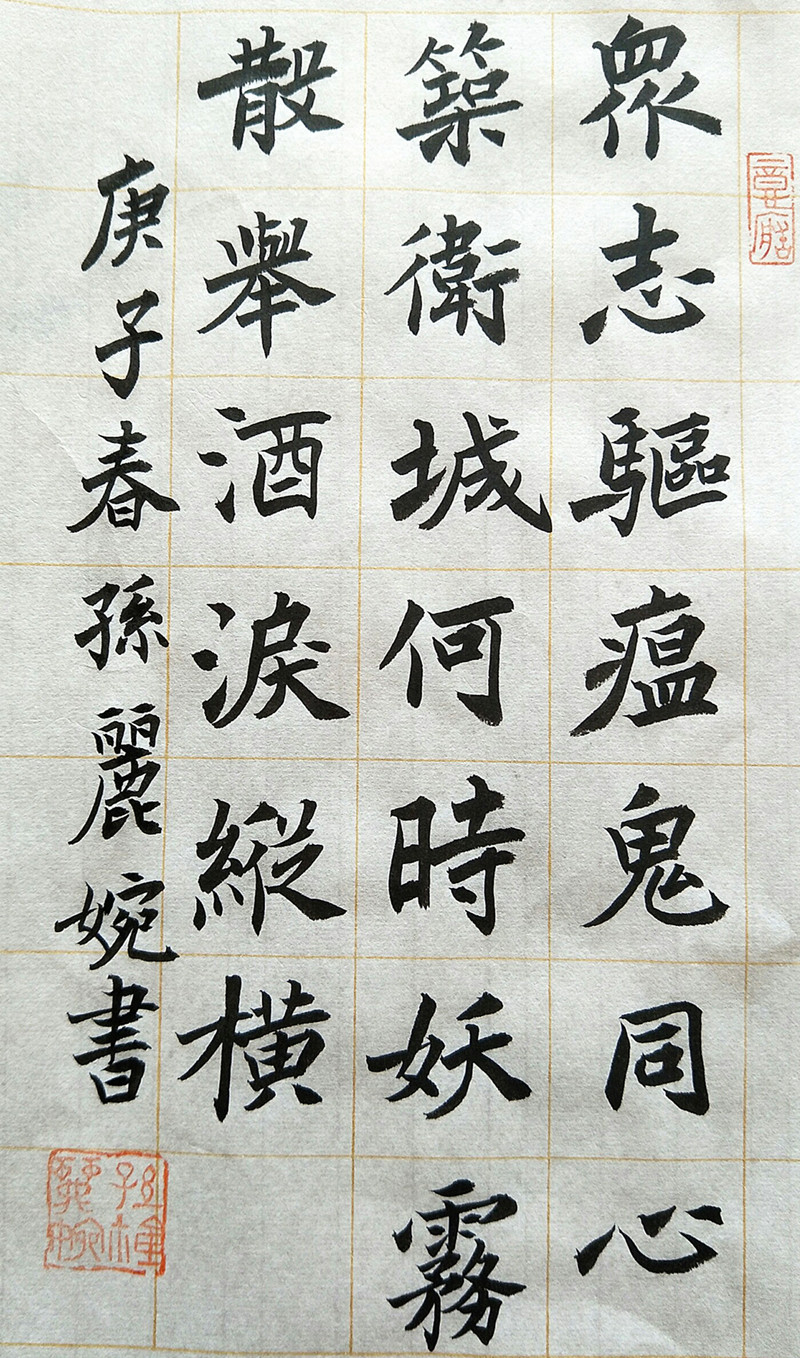 眾志驅瘟鬼同心
築衛城何時妖霧
散舉酒淚縱橫
庚子春孫麗婉書